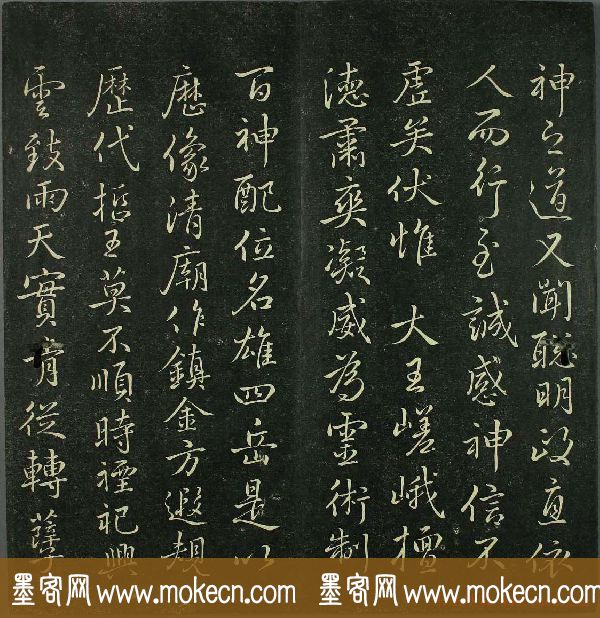 神之道又聞聰明政直依
人而行至誠感神信不
虛矣伏惟 大王嵯峨擅
德肅爽凝威為靈術制
百神配位名雄四岳是以
歷像清廟作鎮金方遐規
歷代哲王莫不順時禋祀興
雲致雨天實肯從轉孽
墨客网 www.mokecn.com 墨客网 www.mokecn.com